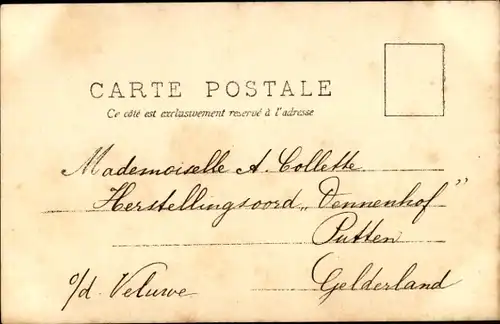 CARTE POSTALE
Ce côté est exclusivement reservé à l'adresse
Mademoiselle A. Collette
Herstellingsoord „Dennenhof”
Putten
o/d. Veluwe
Gelderland